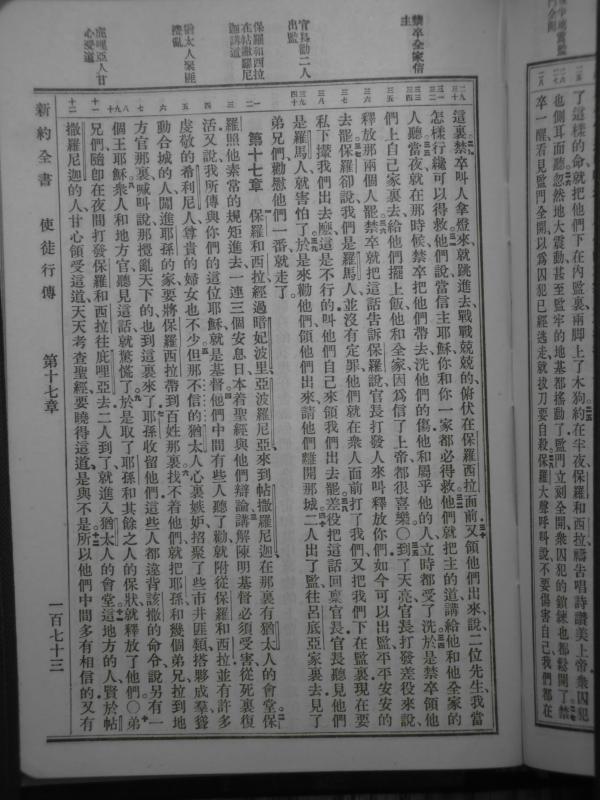 了這樣的命就把他們下在內監裏兩脚上了木狗約在半夜保羅和西拉禱告唱詩讚美上帝衆囚犯
也側耳而聽忽然地大震動甚至監牢的地基都搖動了監門立刻全開衆囚犯的鎖鍊也都鬆開了禁
卒一醒看見監門全開以爲囚犯已經逃走就拔刀要自殺保羅大聲呼叫說不要傷害自己我們都在
禁卒全家信
主
官長勸二人
出監
保羅和西拉
在帖撒羅尼
迦講道
猶太人聚匪
攪亂
庇哩亞人甘
心受道
這裏禁卒叫人拿燈來就跳進去戰戰兢兢的俯伏在保羅西拉面前又領他們出來說二位先生我當
怎樣行纔可以得救他們說當信主耶穌你和你一家都必得救他們就把主的道講給他和他全家的
人聽當夜就在那時候禁卒把他們帶去洗他們的傷他和屬乎他的人立時都受了洗於是禁卒領他
們上自己家裏去給他們擺上飯他和全家因爲信了上帝都很喜樂○到了天亮官長打發差役來說
釋放那兩個人罷禁卒就把這話告訴保羅說官長打發人來叫釋放你們如今可以出監平平安安的
去罷保羅卻說我們是羅馬人並沒有定罪他們就在衆人面前打了我們又把我們下在監裏現在要
私下攆我們出去麼這是不行的叫他們自己來領我們出去罷差役把這話回稟官長官長聽見他們
是羅馬人就害怕了於是來勸他們領他們出來請他們離開那城二人出了監往呂底亞家裏去見了
弟兄們勸慰他們一番就走了
第十七章 保羅和西拉經過暗妃波里亞波羅尼亞來到帖撒羅尼迦在那裏有猶太人的會堂保
羅照他素常的規矩進去一連三個安息日本着聖經與他們辯論講解陳明基督必須受害從死裏復
活又說我所傳與你們的這位耶穌就是基督他們中間有些人聽了勸就附從保羅和西拉並有許多
虔敬的希利尼人尊貴的婦女也不少但那不信的猶太人心裏嫉妒招聚了些市井匪類搭夥成羣聳
動合城的人闖進耶孫的家要將保羅西拉帶到百姓那裏找不着他們就把耶孫和幾個弟兄拉到地
方官那裏喊叫說那攪亂天下的也到這裏來了耶孫收留他們這些人都違背該撒的命令說另有一
個王耶穌衆人和地方官聽見這話就驚慌了於是取了耶孫和其餘之人的保狀就釋放了他們○弟
兄們隨卽在夜間打發保羅和西拉往庇哩亞去二人到了就進入猶太人的會堂這地方的人賢於帖
撒羅尼迦的人甘心領受這道天天考查聖經要曉得這道是與不是所以他們中間多有相信的又有
新約全書 使徒行傳 第十七章 一百七十三